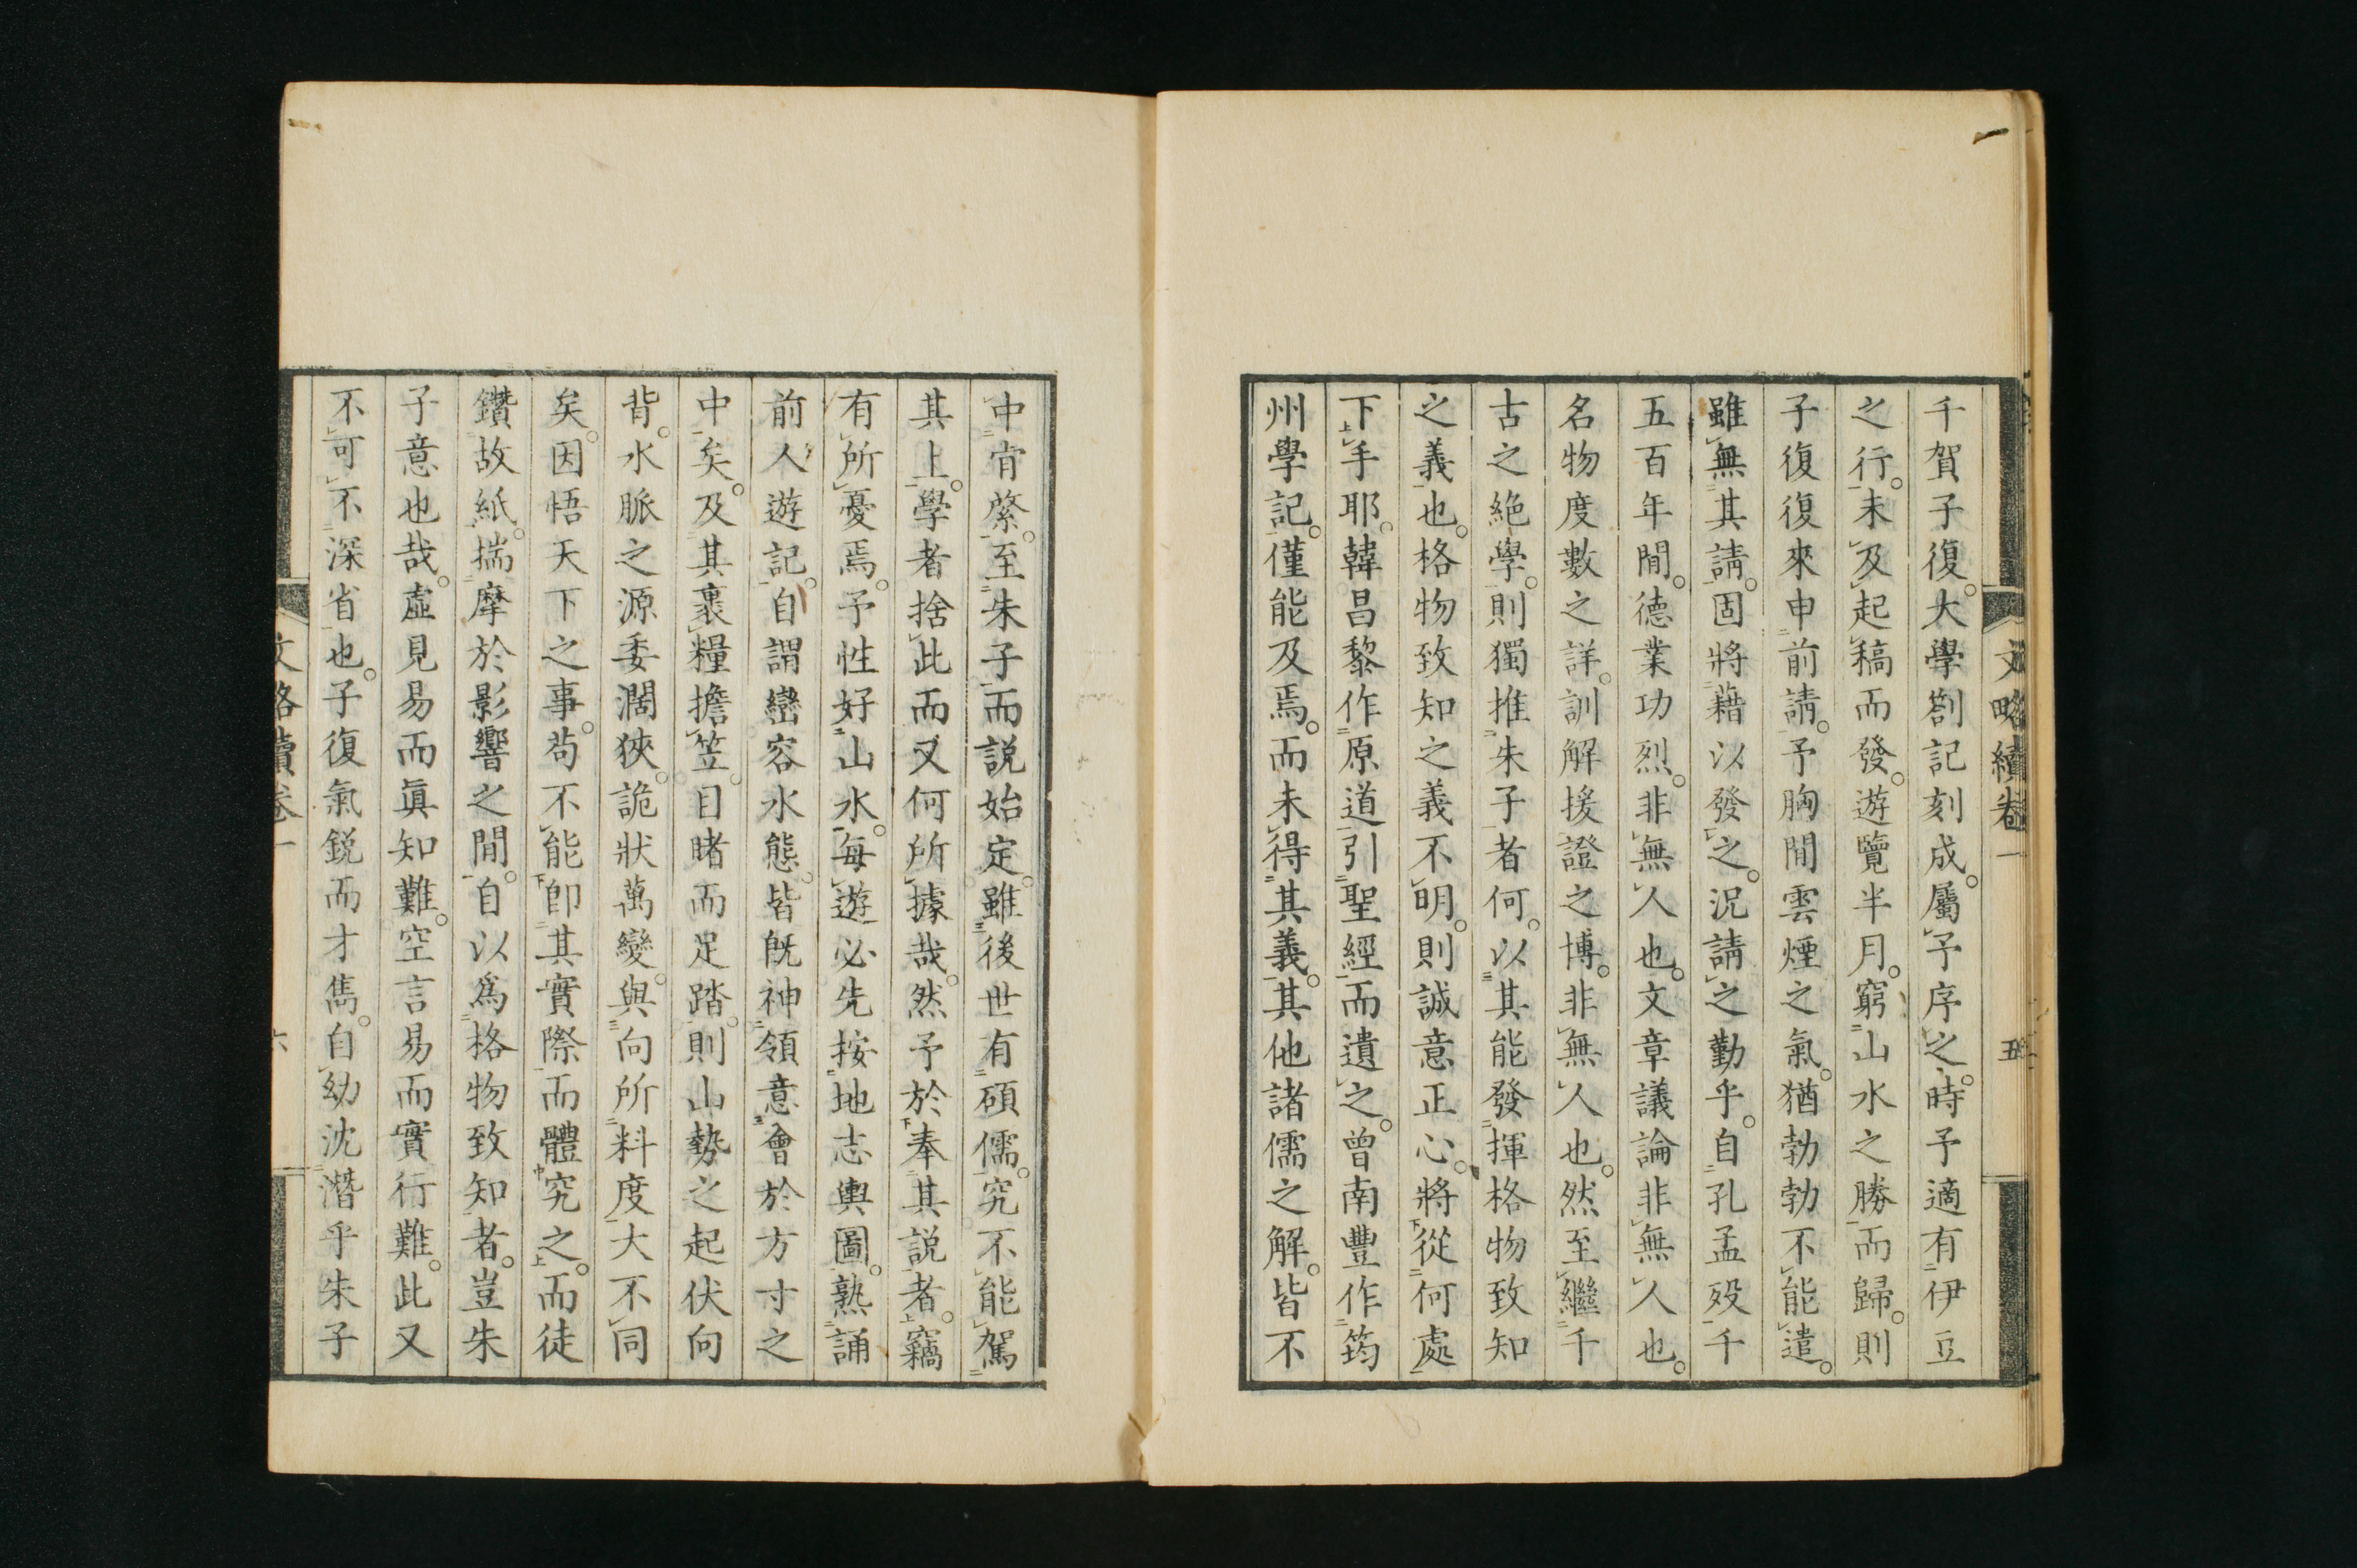 千賀子復。大學劄記刻成。屬予序之。時予適有伊豆
之行。未及起稿而發。遊覽半月。窮山水之勝而歸。則
子復復來申前請。予胸間雲煙之氣。猶勃勃不能遣。
雖無其請。固將藉以發之。況請之勤乎。自孔孟歿千
五百年間。德業功烈。非無人也。文章議論非無人也。
名物度數之詳。訓解援證之博。非無人也。然至繼千
古之絶學。則獨推朱子者何。以其能發揮格物致知
之義也。格物致知之義不明。則誠意正心。將從何處
下手耶。韓昌黎作原道引聖經而遺之。曾南豐作筠
州學記。僅能及焉。而未得其義。其他諸儒之解。皆不
文略續卷一
五
中肯綮。至朱子而説始定。雖後世有碩儒。究不能駕
其上。學者捨此而又何所據哉。然予於奉其説者。竊
有所憂焉。予性好山水。每遊必先按地志輿圖。熟誦
前人遊記。自謂巒容水態。皆既神領意會於方寸之
中矣。及其裹糧擔笠。目睹而足踏。則山勢之起伏向
背。水脈之源委濶狹。詭狀萬變。與向所料度大不同
矣。因悟天下之事。苟不能卽其實際而體究之。而徒
鑽故紙。揣摩於影響之間。自以爲格物致知者。豈朱
子意也哉。虛見易而眞知難。空言易而實行難。此又
不可不深省也。子復氣鋭而才雋。自幼沈潛乎朱子
文略續卷一
六